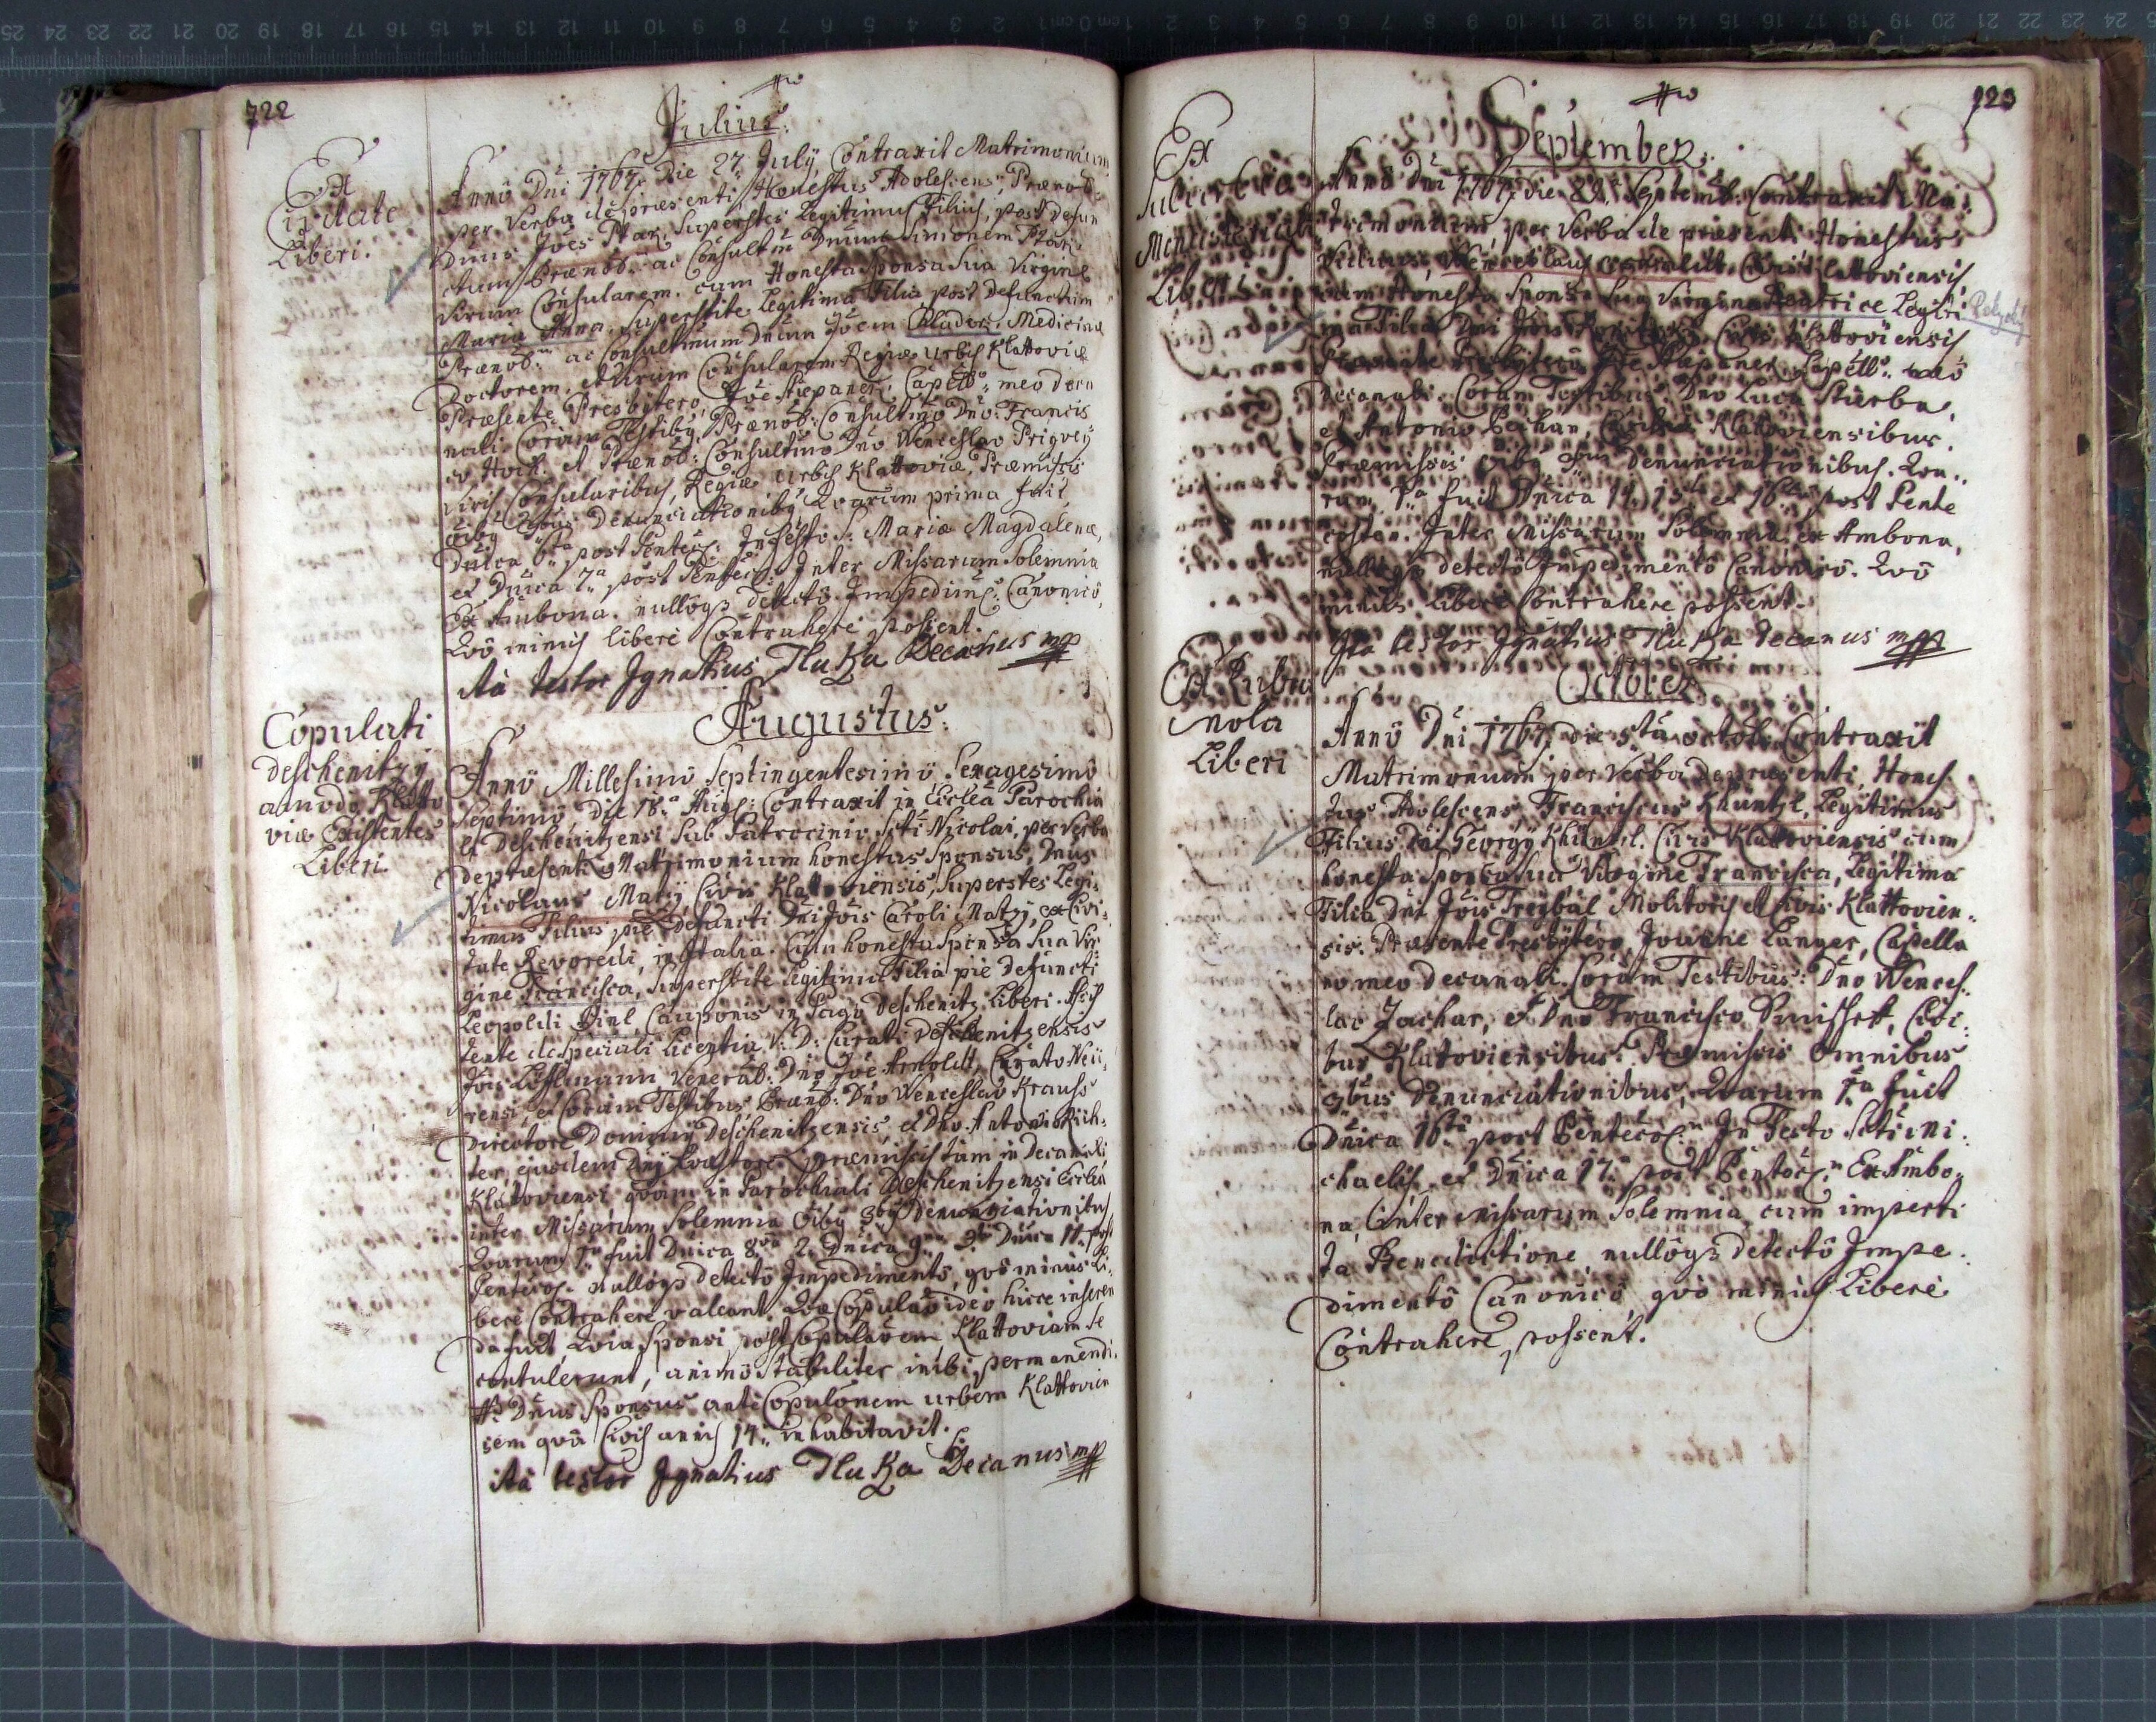 722
Julius:
Ex
Civitate
Liberi.
Anno Dni 1767. Die 27. July, Contraxit Matrimonium
per Verba de præsenti, Honestus Adolescens, Prænob:
Dnus Jões Ptak, Superstes Legitimus Filius, post defun
ctum Prænob: ac Consultm̄ Dnum Simonem Ptak
Virum Consularem. cum Honesta Sponsa Sua Virgine
Maria Anna, Superstite Legitima Filia post Defunctum
Prænob:m ac Consultm̄um Dnum Jöem Medicinæ
Doctorem, et Virum Consularem Regiæ Urbis Klattoviæ
Præsente Presbytero Jöe Stiepanek, Capello: meo deca
nali. Coram Testibq Prænob: Consultmo Dno: Francis
co Hoch. et Prænob: Consultmo Dno Wenceslao
Viris Consularibus, Regiæ Urbis Klattoviæ, Præmissis
õibq 3bus Denunciationibq, Quarum prima fuit
Dnica 6ta post Pentec: In Festo S: Mariæ Magdalenæ,
et Dnica 7a post Pentec: Inter Missarum Solemnia
Ex Ambona. nullõqз detecto Impedim: Canonicô,
Quô minus liberè Contrahere possent.
Ità testor Ignatius Tluka Decanus mpp
Augustus:
Copulati
deschenitzy
amodo Klatto
viæ Existentes
Liberi.
Annô Millesimô Septingentesimô Sexagesimô
Septimô, Die 18.a Aug: Contraxit in Ecclea Parochia
li Deschenitzensi Sub Patrocinio Scti Nicolai, per Verba
de præsenti Matrimonium honestus Sponsus, Dnus
Nicolaus Matzy Civis Klattoviensis, Superstes Legi:
timus Filius piè Defuncti Dni Jöis Caroli Matzy, ex Civi:
tate Revoredi, in Italia. Cum honesta Sponsa Sua Vir
gine Francisca, Superstite Legitima Filia piè Defuncti
Leopoldi Cauponis in Pago Deschenitz Liberi. Assis
tente de Speciali Licentia V: D: Curati Deschenitzensis
Jöis Venerab: Dno Jöe Arnoldt, Curato Neü:
rensi, et Coram Testibus Prænob: Dno Wenceslao Krauss
Directore Dominy Deschenitzensis, et Dno Antonio Rich:
ter, ejusdem Dnij Quæstore. præmissis tam in Decanali
Klattoviensi quam in Parochiali Deschenitzensi Ecclea
inter Missarum Solemnia õibq 3bq Denunciationibus
Quarum 1ma fuit Dnica 8va 2. Dnica 9na 3tia Dnica 11. post
Pentecos. nullôqз detectô Impedimentô, quô minus Li
berè Contrahere valeant. Quæ Copulaõ ideò hicce inseren
da fuit, Quia Sponsi post Copulãoem Klattoviam se
contulerunt, animo Stabiliter inibi permanendi.
Dnus Sponsus ante Copulãonem urbem Klattovien
sem quà Civis annis 14. inhabitavit.
Ità testor Ignatius Tluka Decanus mpp
723
September.
Ex
Suburbio
Liberi
Annô Dni 1767. die 28. Septemb: Contraxit Ma:
trimonium per Verba de præsenti Honestus
Viduus, Wenceslaus Civis Klattoviensis,
cum Honesta Sponsa Sua Virgine Beatrice Legiti:
ma Filia Dni Jöis Civis Klattoviensis
Præsente Presbytero Jöe Stiepanek, Capello: meô
decanali. Coram Testibus: Dno Luca Stierba,
et Antonio Civibus Klattoviensibus.
Præmissis õibq 3bus denunciationibus. Qua:
rum 1a fuit Dnica 14. 15ta et 16ta post Pente
costen. Inter Missarum Solemnia ex Ambona,
nullôqз detectô Impedimentô Canonicô. Quô
minus Liberè Contrahere possent.
Ita testor Ignatius Tluka Decanus mpp
October.
Ex Lubu
nola
Liberi
Annô Dni 1767. die 5.ta octob: Contraxit
Matrimonium per Verba de præsenti, Hones
tus Adolescens Franciscus Khüntzl, Legitimus
Filius Dni Georgy Khüntzl. Civis Klattoviensis cum
honesta Sponsa Sua Virgine Francisca, Legitima
Filia Dni Jöis Treybal Molitoris et Civis Klattovien:
sis. Præsente Presbytero, Joanne Langer, Capella
no meo decanali. Coram Testibus: Dno Wences:
lao Zachar, et Dno Francisco Civi:
bus Klatoviensibus. Præmissis Omnibus
3bus Denunciationibus, Quarum 1.ma fuit
Dnica 16ta post Pentecos:n In Festo Scti Mi:
chaelis, et Dnica 17.a post Pentec:n Ex Ambo:
na, inter Missarum Solemnia, cum imperti
ta Benedictione, nullôqз detectô Impe:
dimentô Canonicô, quô minus Liberè
Contrahere possent.